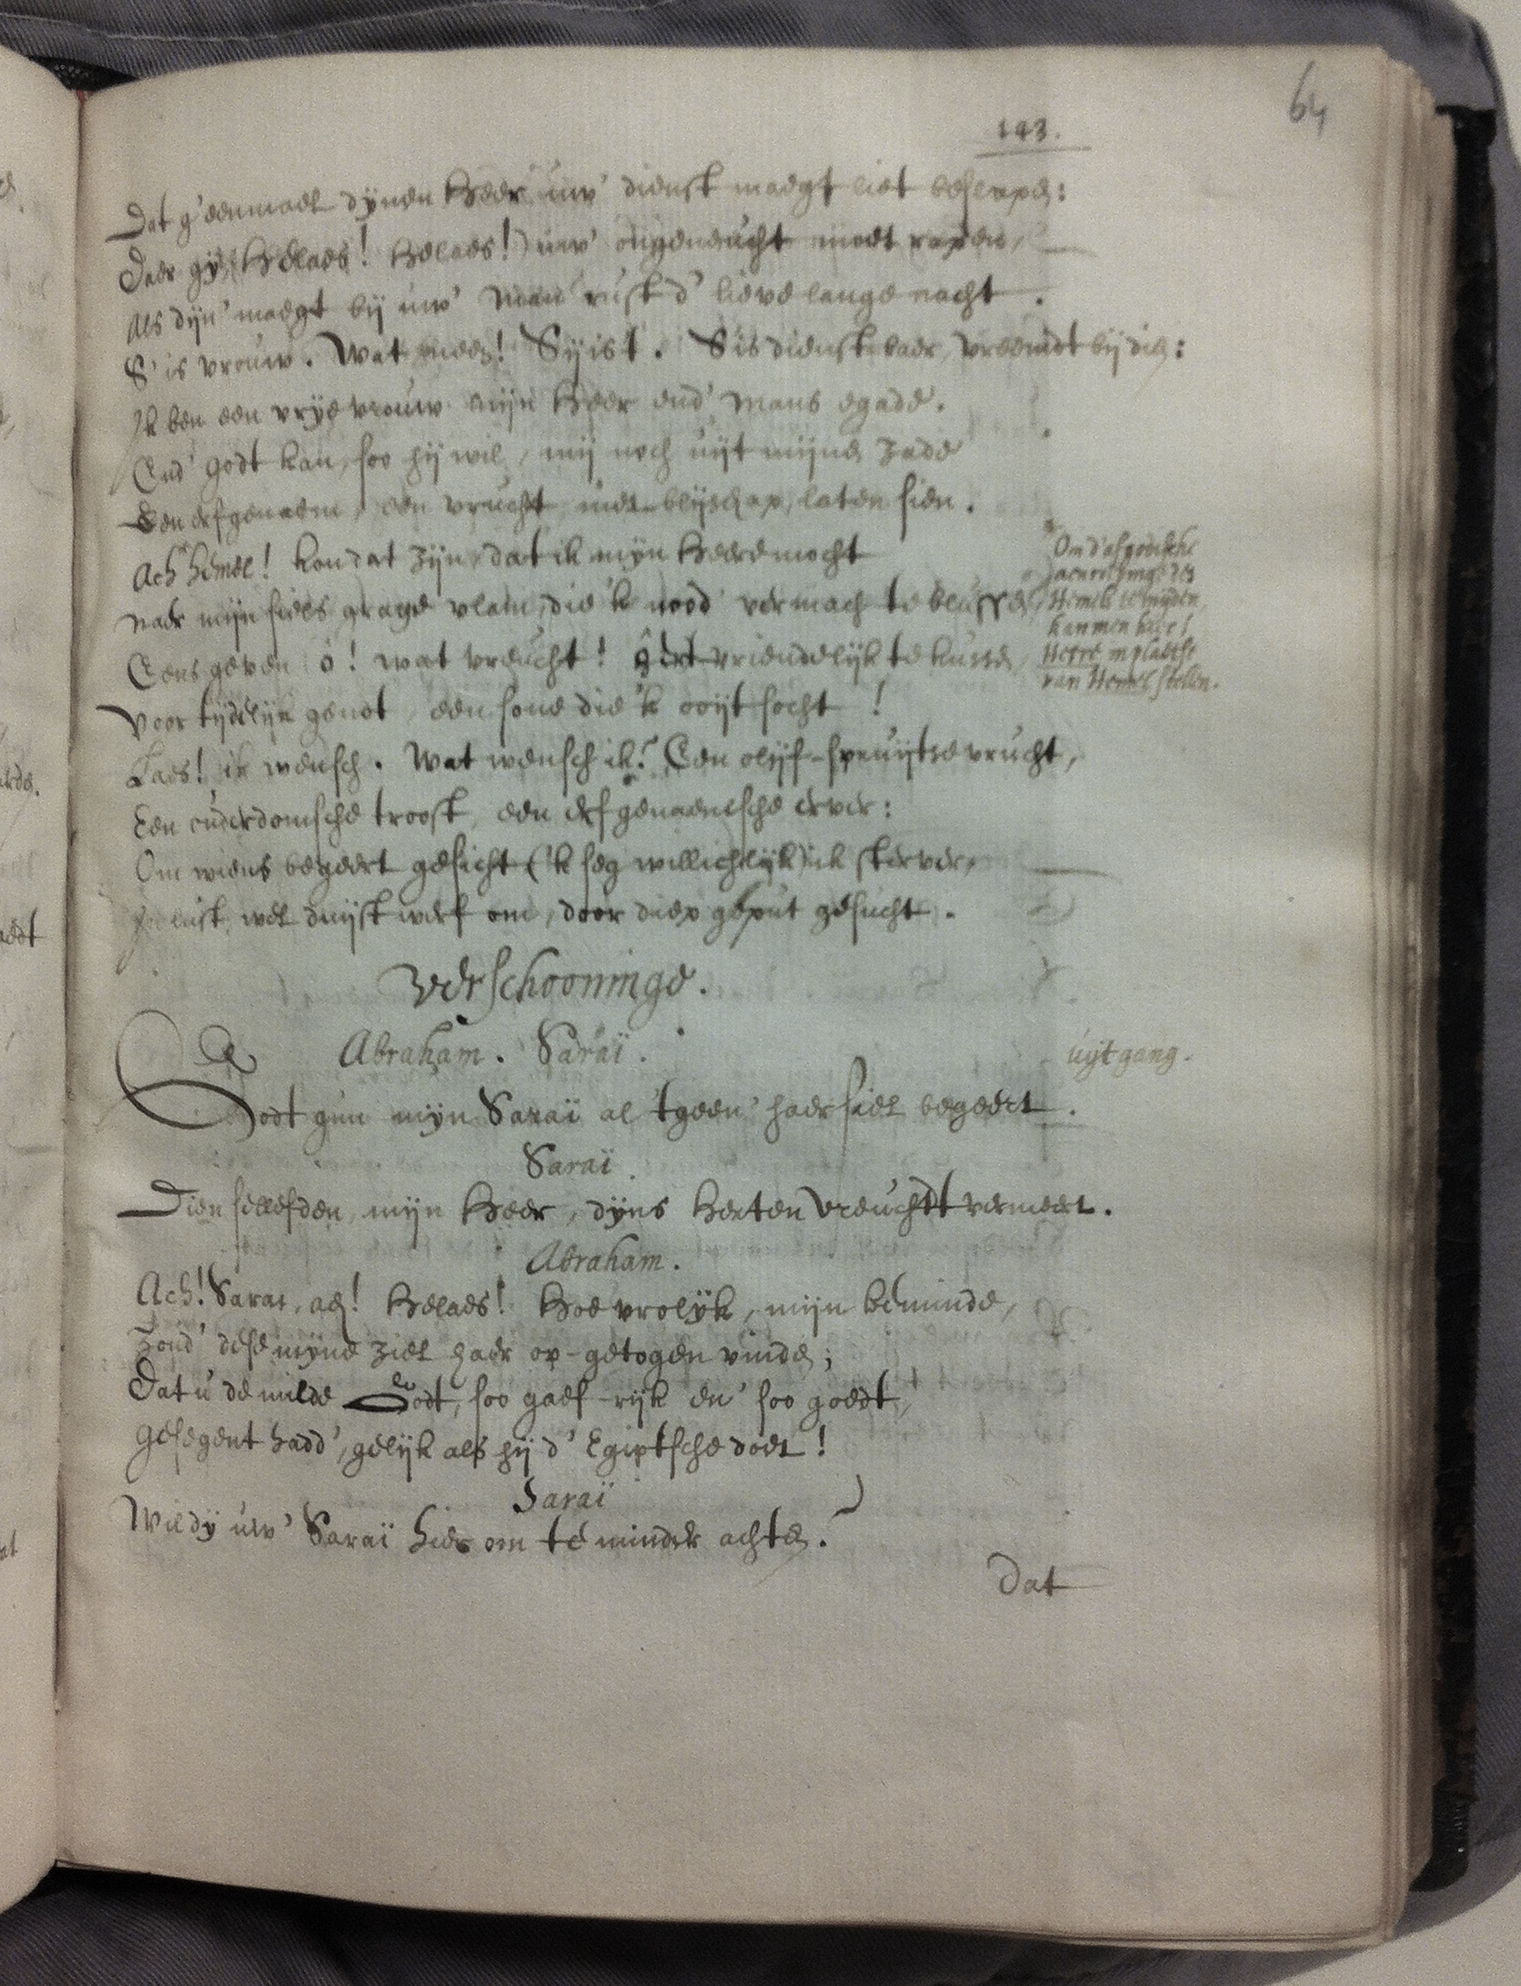 64
143.
Dat g'eenmael dynen Heer uw' dienst maegt liet beslapen:
Daer gy (Helaes! Helaes!) uw' ongeneucht moet rapen,
Als dyn' maegt bij uw' Man rust d' lieve lange nacht.
S' is vrouw. Wat neen! Sy ist. S' is dienstbaer, vreemdt bij dien:
Ik ben een vrye vrouw mijn Heer end' Mans egade.
End' Godt kan, soo hij wil, mij noch uijt mijnen zade
Een erfgenaem, een vrucht, met blijschap, laten sien.
Ach Hemel! kon dat zijn, dat ik mijn Heere mocht
naer mijn siels grage vlam, die 'k nood vermach te blussen,
Eens geven ô! wat vreucht! vriendelijk te kussen,
Voor tijdelijk genot, een sone die 'k ooijt socht!
Laes! ik wensch. Wat wensch ik? Een olijf-spruijtse vrucht,
Een ouderdomsche troost, een erfgenaemsche erver:
Om wiens begeert gesicht ('k seg willichlijk) ik sterver,
Je lust, wel duijst werf om, door diep geput gesucht.
Om d'afgodische
Hemels te mijden,
kan men hier
Heere in plaetse
van Hemel stellen.
Verschooninge.
Abraham. Saraï.
uijtgang.
Godt gun mijn Saraï al 'tgeen' haer siel begeert.
Saraï.
Dien selefden, mijn Heer, dyns Herten vreucht vermeert.
Abraham.
Ach! Sarai, ach! Helaes! Hoe vrolijk, mijn beminde,
Zoud' dese mijne ziel haer op-getogen vinden;
Dat u de milde Godt, soo gaef-rijk en' soo goedt,
Gesegent hadd', gelijk als hij d' Egiptsche doet!
Saraï
Wildy uw' Saraï hier om te minder achten?
Dat